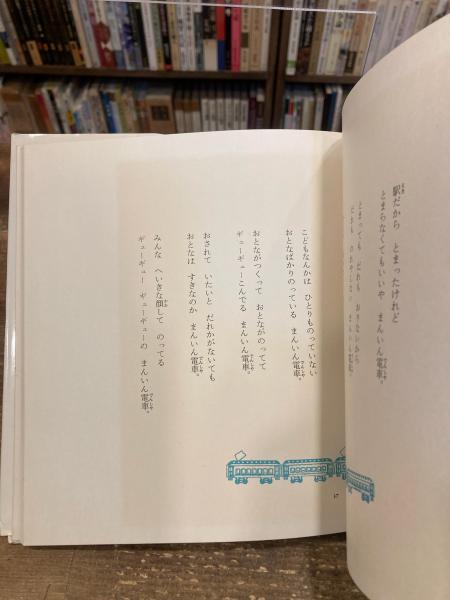 駅だから　とまったけれど
とまらなくてもいいや　まんいん電車。
とまっても　だれも　おりないから
だれも　のれやしない　まんいん電車。
こどもなんかは　ひとりものっていない
おとなばかりのっている　まんいん電車。
おとながつくって　おとながのってて
ギューギューこんでる　まんいん電車。
おされて　いたいと　だれかがないても
おとなは　すきなのか　まんいん電車。
みんな　へいきな顔して　のってる
ギューギュー　ギューギューの　まんいん電車。
17